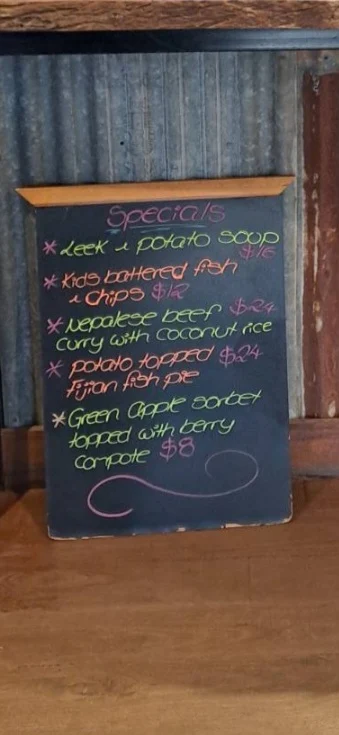 Specials
* Leek & potato soup
$16
* Kids battered fish
& chips $12
* Nepalese beef $24
curry with coconut rice
* potato topped $24
Fijian fish pie
* Green apple sorbet
topped with berry
compote $8